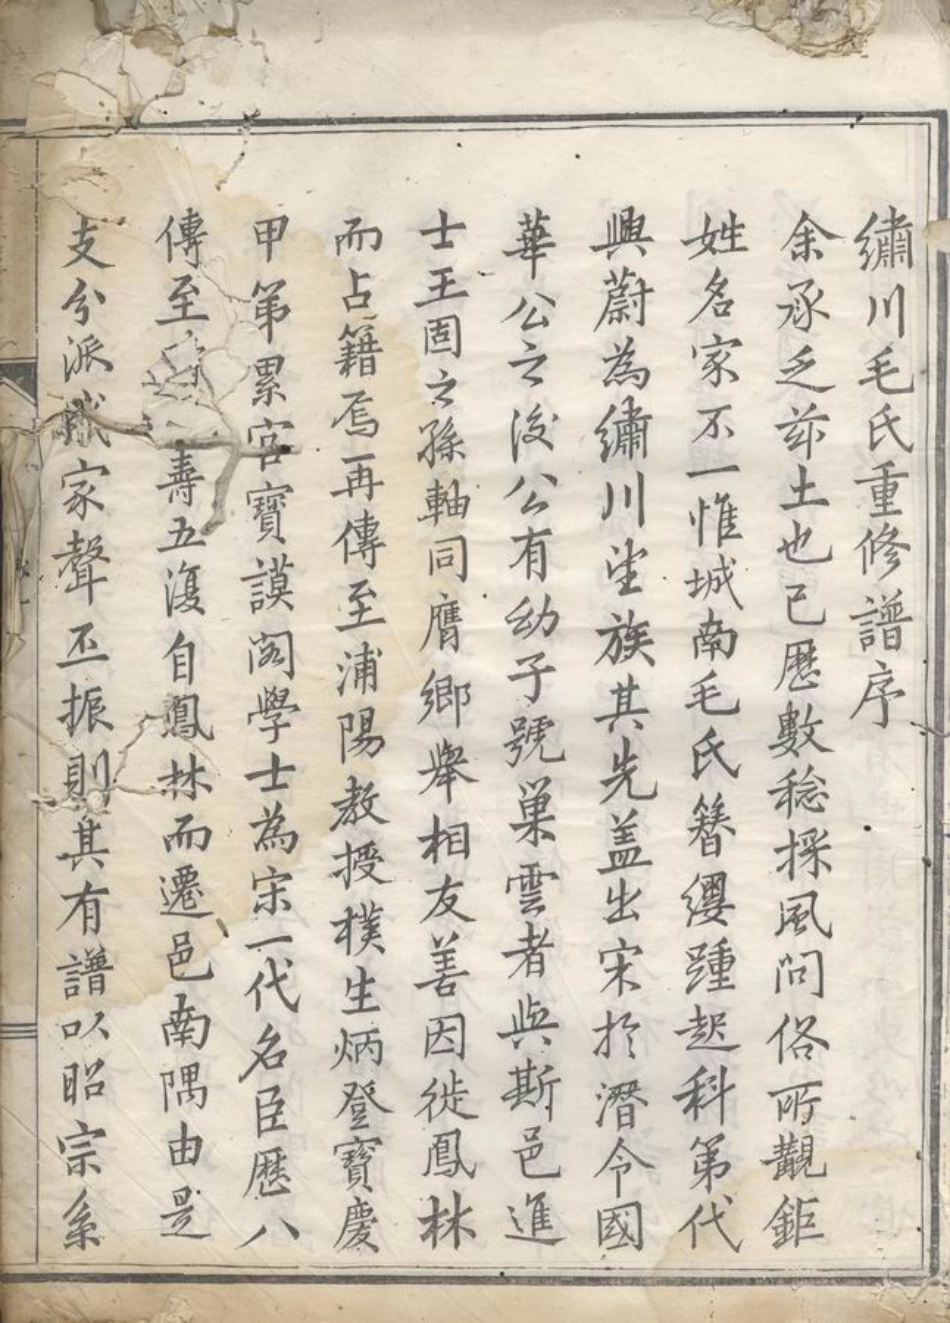 繡川毛氏重修譜序
余承乏茲土也已歷數稔採風問俗所覯鉅
姓名家不一惟城南毛氏簪纓踵起科第代
興蔚為繡川望族其先盖出宋於潛令國
華公之後公有幼子號巢雲者與斯邑進
士王固之孫軸同膺鄉舉相友善因徙鳳林
而占籍焉再傳至浦陽教授樸生炳登寶慶
甲第累官寶謨閣學士為宋一代名臣歷八
傳至壽五復自鳳林而遷邑南隅由是
支分派家聲丕振則其有譜以昭宗系